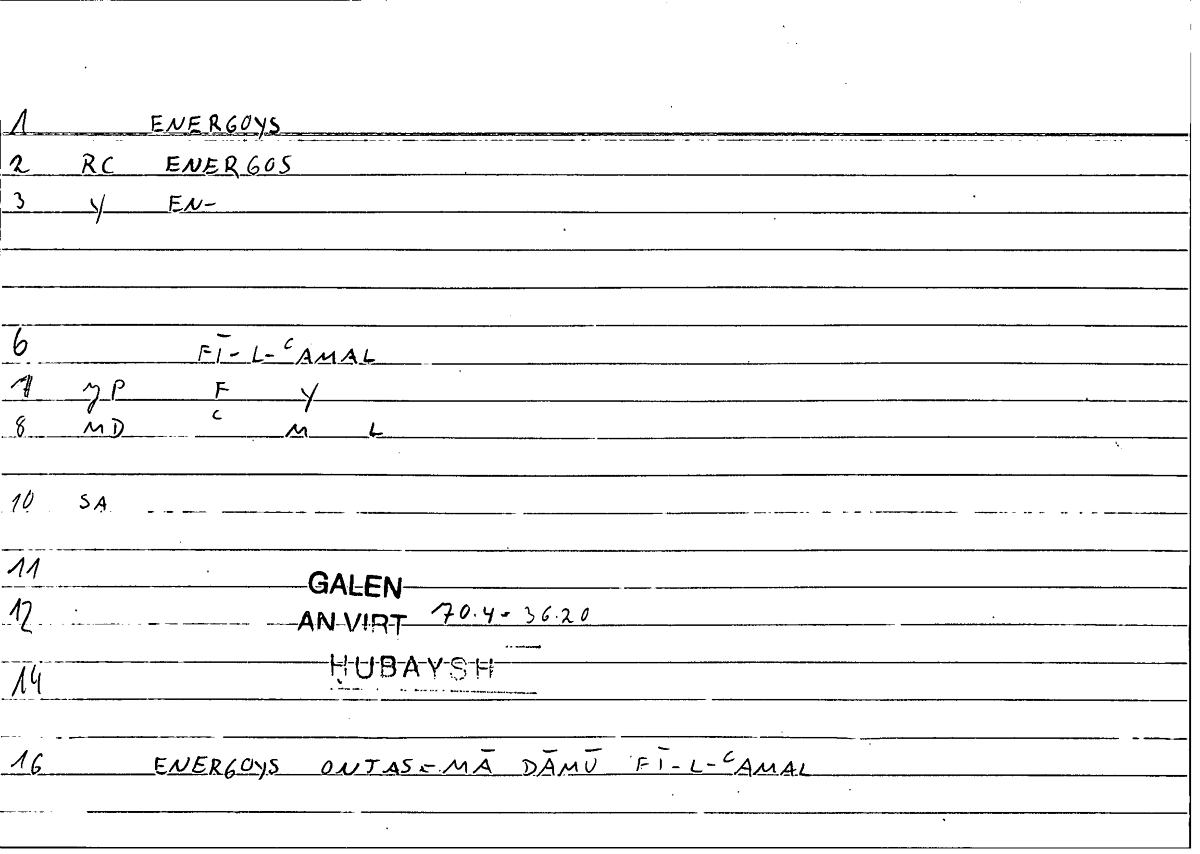 1 ENERGOYS
2 RC ENERGOS
3 Y EN-
6 FĪ-L-ᶜAMAL
7 JP F Y
8 MD ᶜ M L
10 SA
11 GALEN
12 AN VIRT 70.4 = 36.20
ḤUBAYSH
14
16 ENERGOYS ONTAS = MĀ DĀMŪ FĪ-L-ᶜAMAL